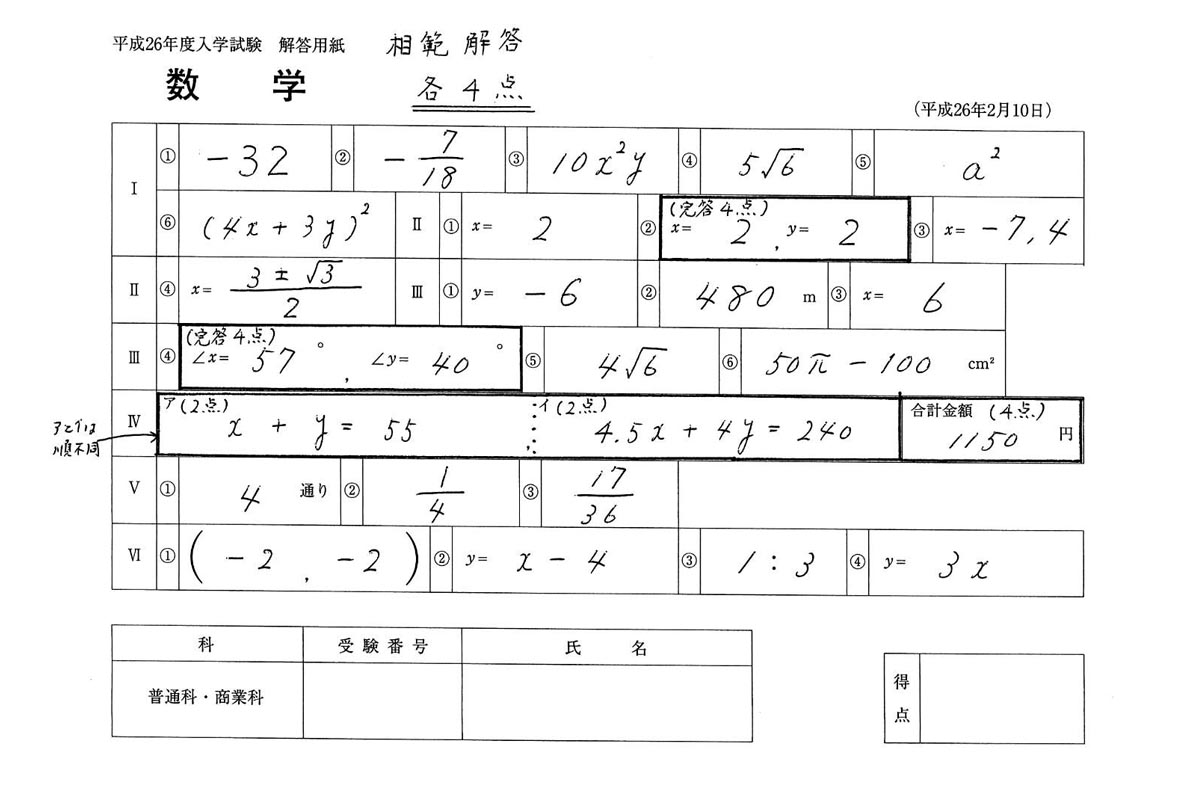 平成26年度入学試験 解答用紙 模範解答
数 学 各4点
(平成26年2月10日)
I ① -32 ② -7/18 ③ 10x²y ④ 5√6 ⑤ a²
⑥ (4x+3y)² II ① x= 2 ② (完答4点) x= 2 , y= 2 ③ x= -7,4
II ④ x= (3±√3)/2 III ① y= -6 ② 480 m ③ x= 6
III ④ (完答4点) ∠x= 57° , ∠y= 40° ⑤ 4√6 ⑥ 50π-100 cm²
IV ア(2点) x + y = 55 , イ(2点) 4.5x + 4y = 240 合計金額 (4点) 1150 円
アとイは
順不同
V ① 4 通り ② 1/4 ③ 17/36
VI ① ( -2 , -2 ) ② y= x-4 ③ 1:3 ④ y= 3x
科 受験番号 氏 名
普通科・商業科
得点